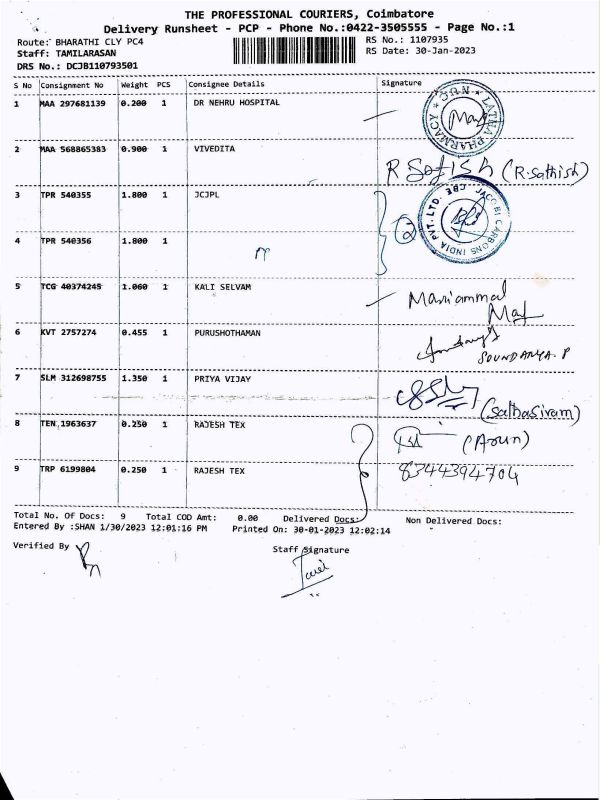 THE PROFESSIONAL COURIERS, Coimbatore
Delivery Runsheet - PCP - Phone No.:0422-3505555 - Page No.:1
Route: BHARATHI CLY PC4 RS No.: 1107935
Staff: TAMILARASAN RS Date: 30-Jan-2023
DRS No.: DCJB110793501
S No Consignment No Weight PCS Consignee Details Signature
1 MAA 297681139 0.200 1 DR NEHRU HOSPITAL
JRN * LATHA PHARMACY *
2 MAA 568865383 0.900 1 VIVEDITA
R Satish (R.sathish)
3 TPR 540355 1.800 1 JCJPL
JACOBI CARBONS INDIA PVT. LTD. CBE
2
4 TPR 540356 1.800 1
5 TCG 40374245 1.060 1 KALI SELVAM
Mariammal
6 KVT 2757274 0.455 1 PURUSHOTHAMAN
SOUNDARYA.P
7 SLM 312698755 1.350 1 PRIYA VIJAY
(Sathasivam)
8 TEN 1963637 0.250 1 RAJESH TEX
(Arun)
9 TRP 6199804 0.250 1 RAJESH TEX
8344394704
Total No. Of Docs: 9 Total COD Amt: 0.00 Delivered Docs: Non Delivered Docs:
Entered By :SHAN 1/30/2023 12:01:16 PM Printed On: 30-01-2023 12:02:14
Verified By Staff Signature